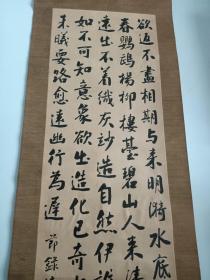 欲返不盡相期与来明漪水底
春鸚鵡楊柳樓臺碧山人来清
遠出不着纖灰妙造自然伊
如不可知意象欲出造化已奇
未曦要路愈遠幽行為遲 節録